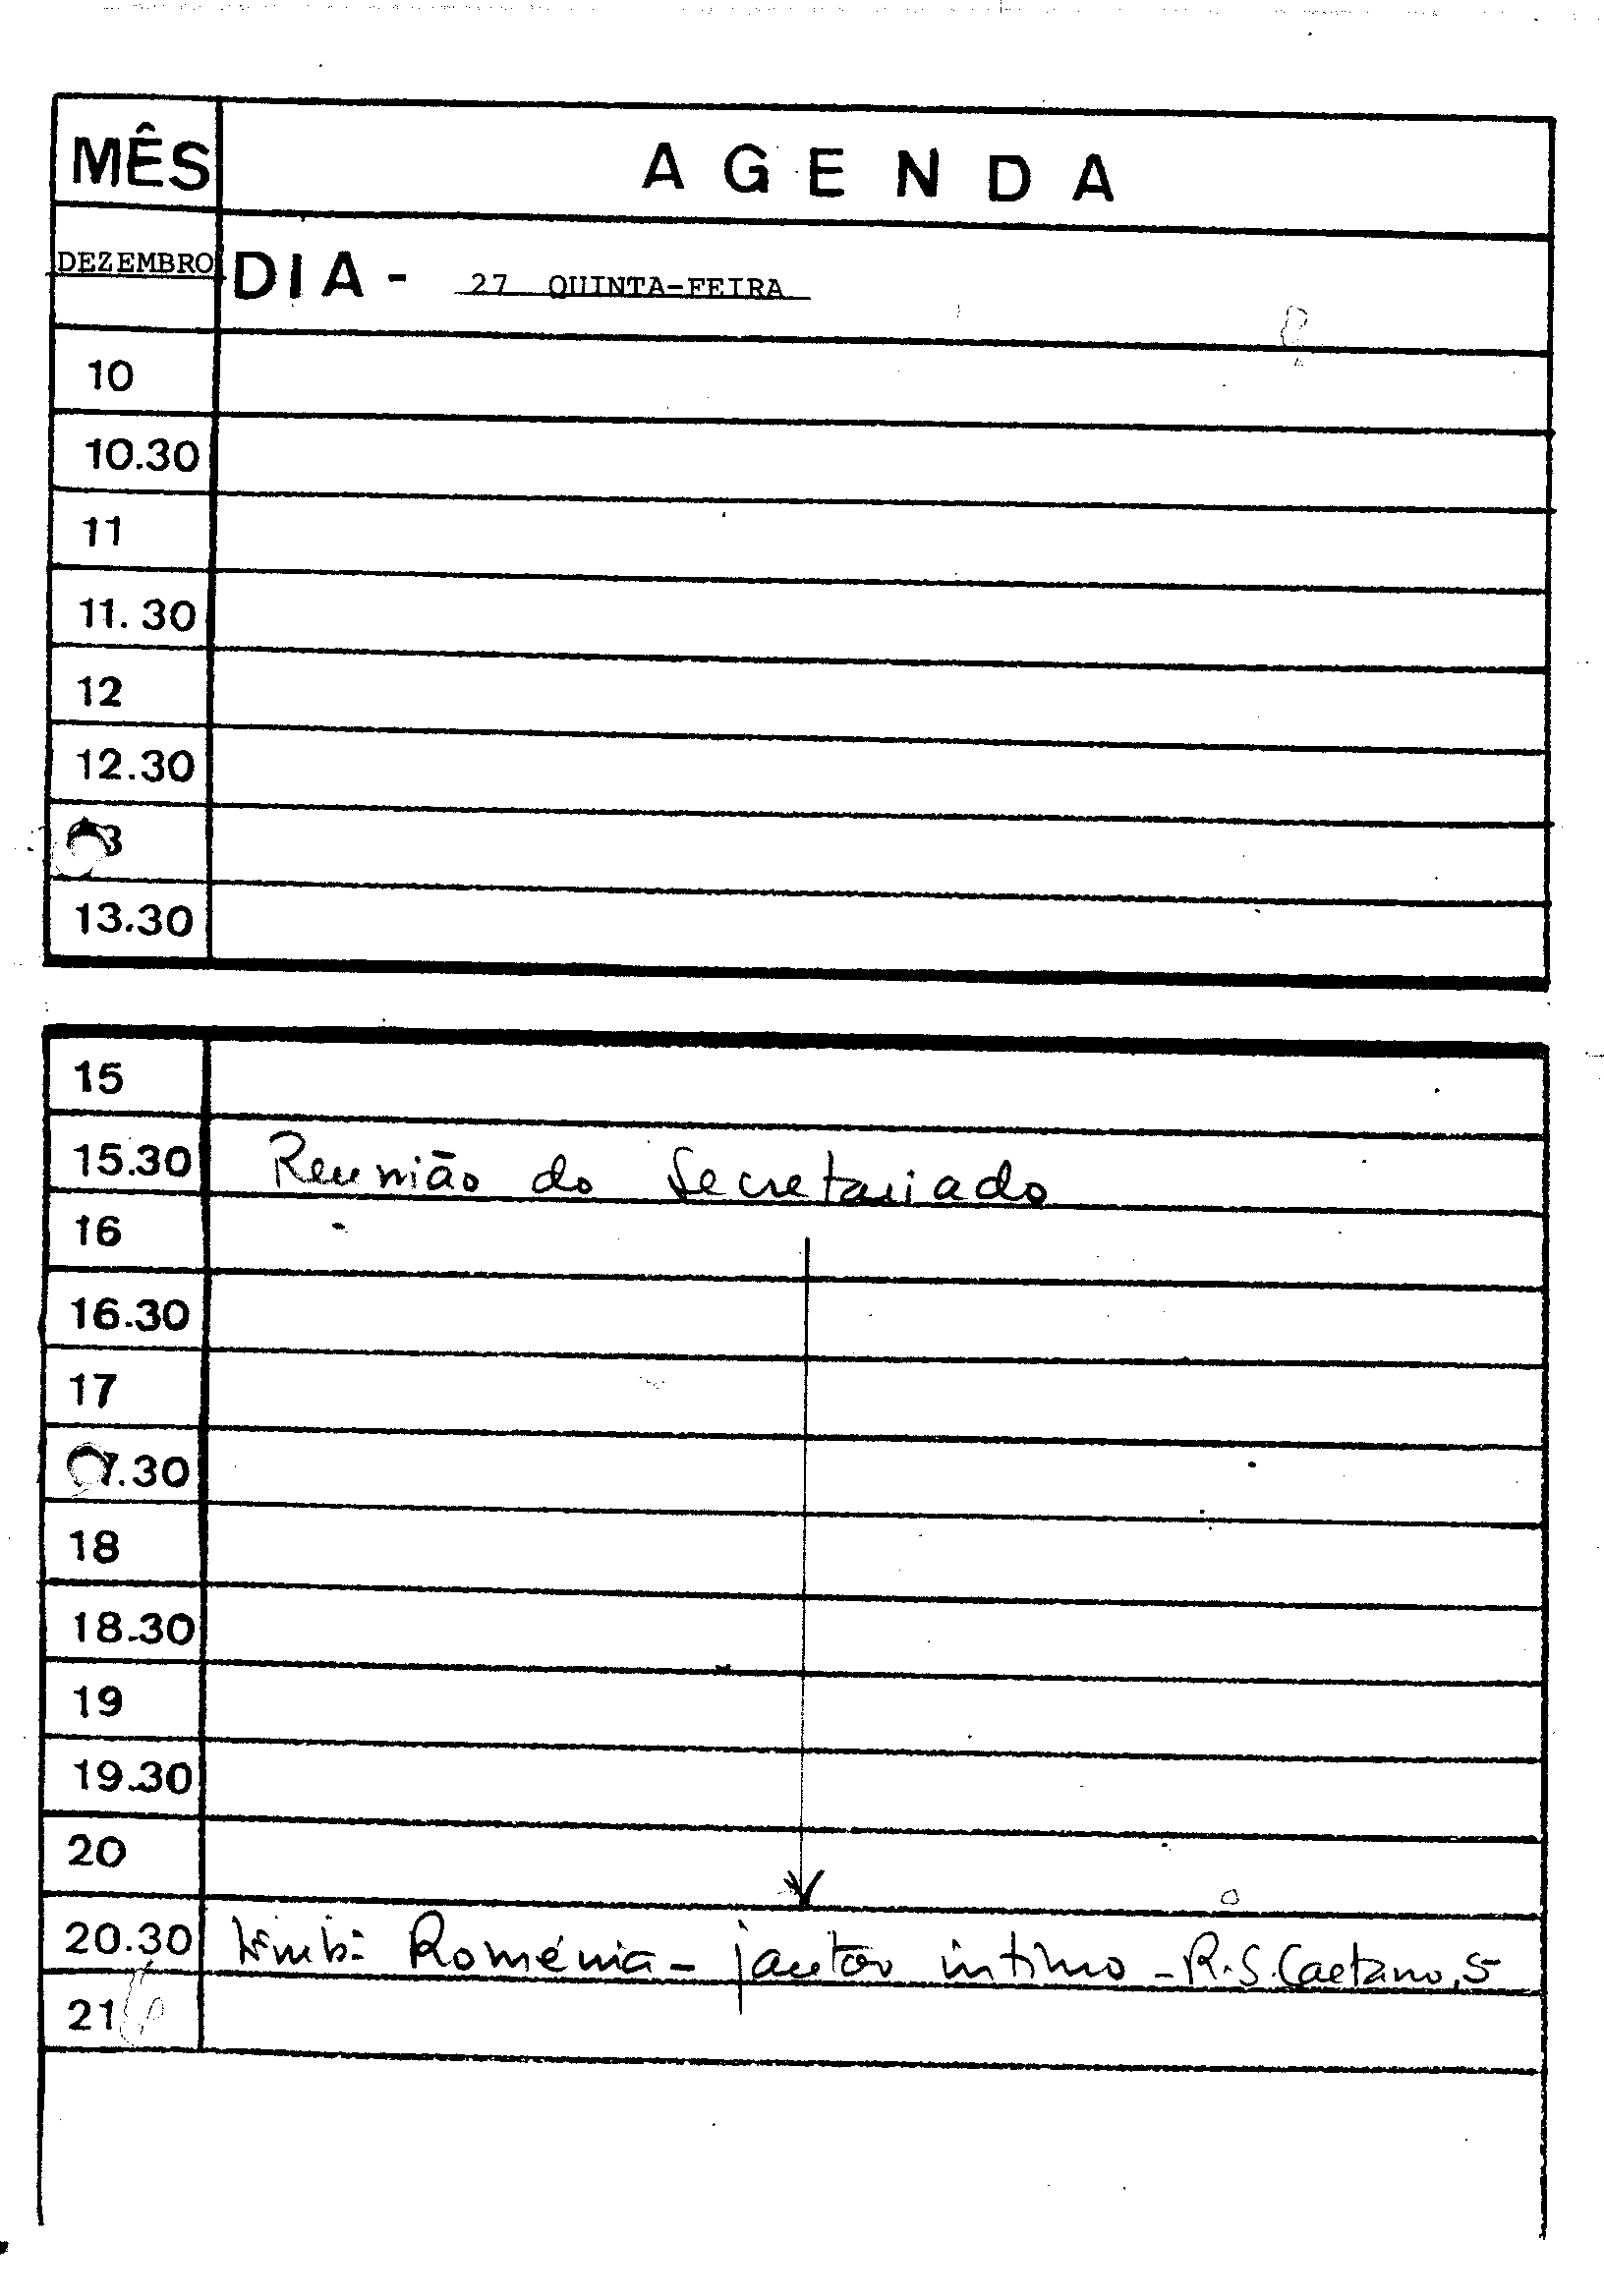 MÊS
AGENDA
DEZEMBRO
DIA - 27 QUINTA-FEIRA
10
10.30
11
11.30
12
12.30
3
13.30
15
15.30 Reunião do Secretariado
16
16.30
17
7.30
18
18.30
19
19.30
20
20.30 Roménia - jantar íntimo - R. S. Caetano, 5
21